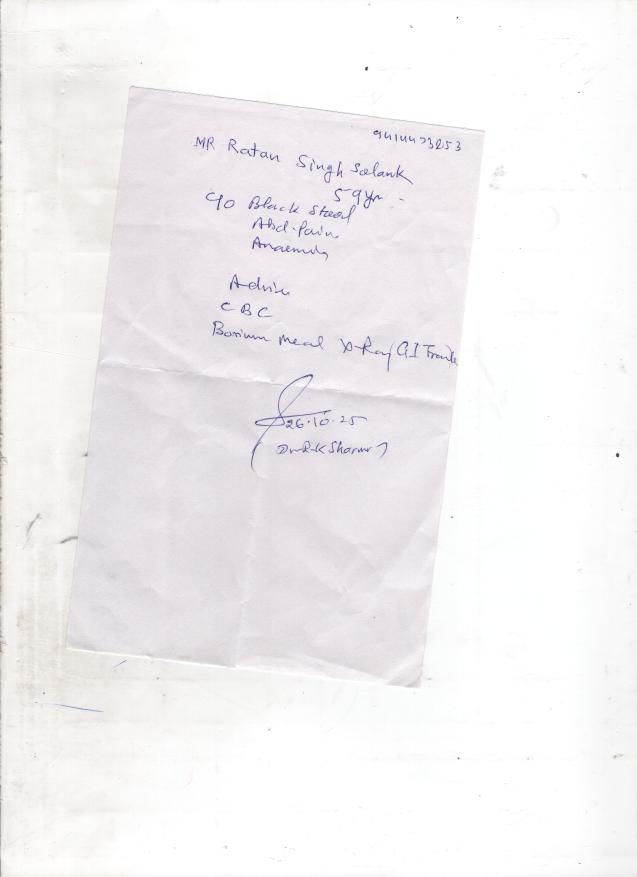 9414473253
MR Ratan Singh Solank
59yr
C/O Black Stool
Abd. Pain
Anaemia
Advise
CBC
Barium Meal X-Ray G.I Track
26.10.25
Dr R K Sharma